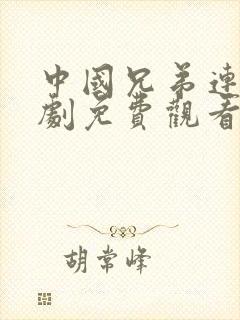 中國兄弟連
劇免費觀看
胡常峰